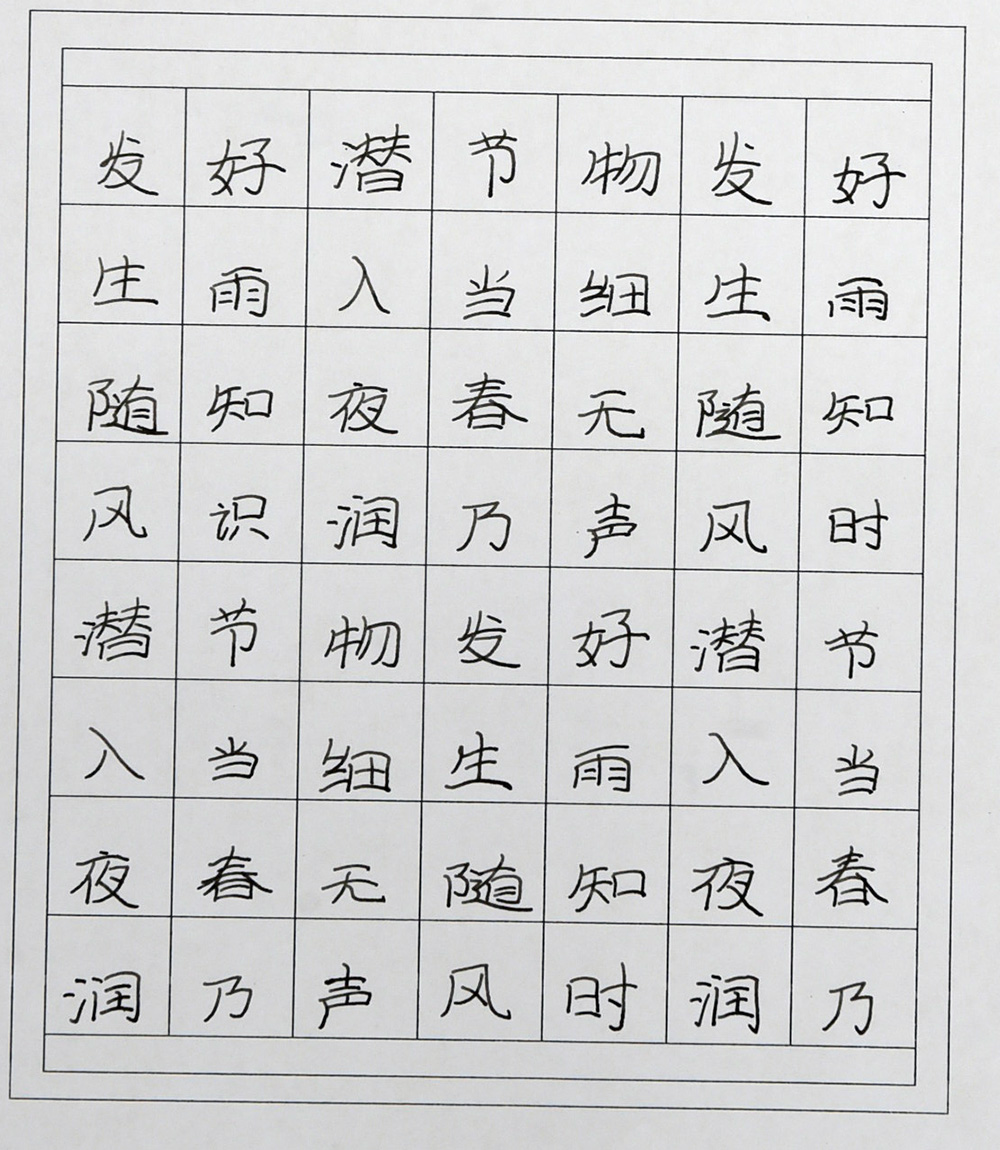 好雨知时节当春乃
发生随风潜入夜润
物细无声好雨知时
节当春乃发生随风
潜入夜润物细无声
好雨知识节当春乃
发生随风潜入夜润